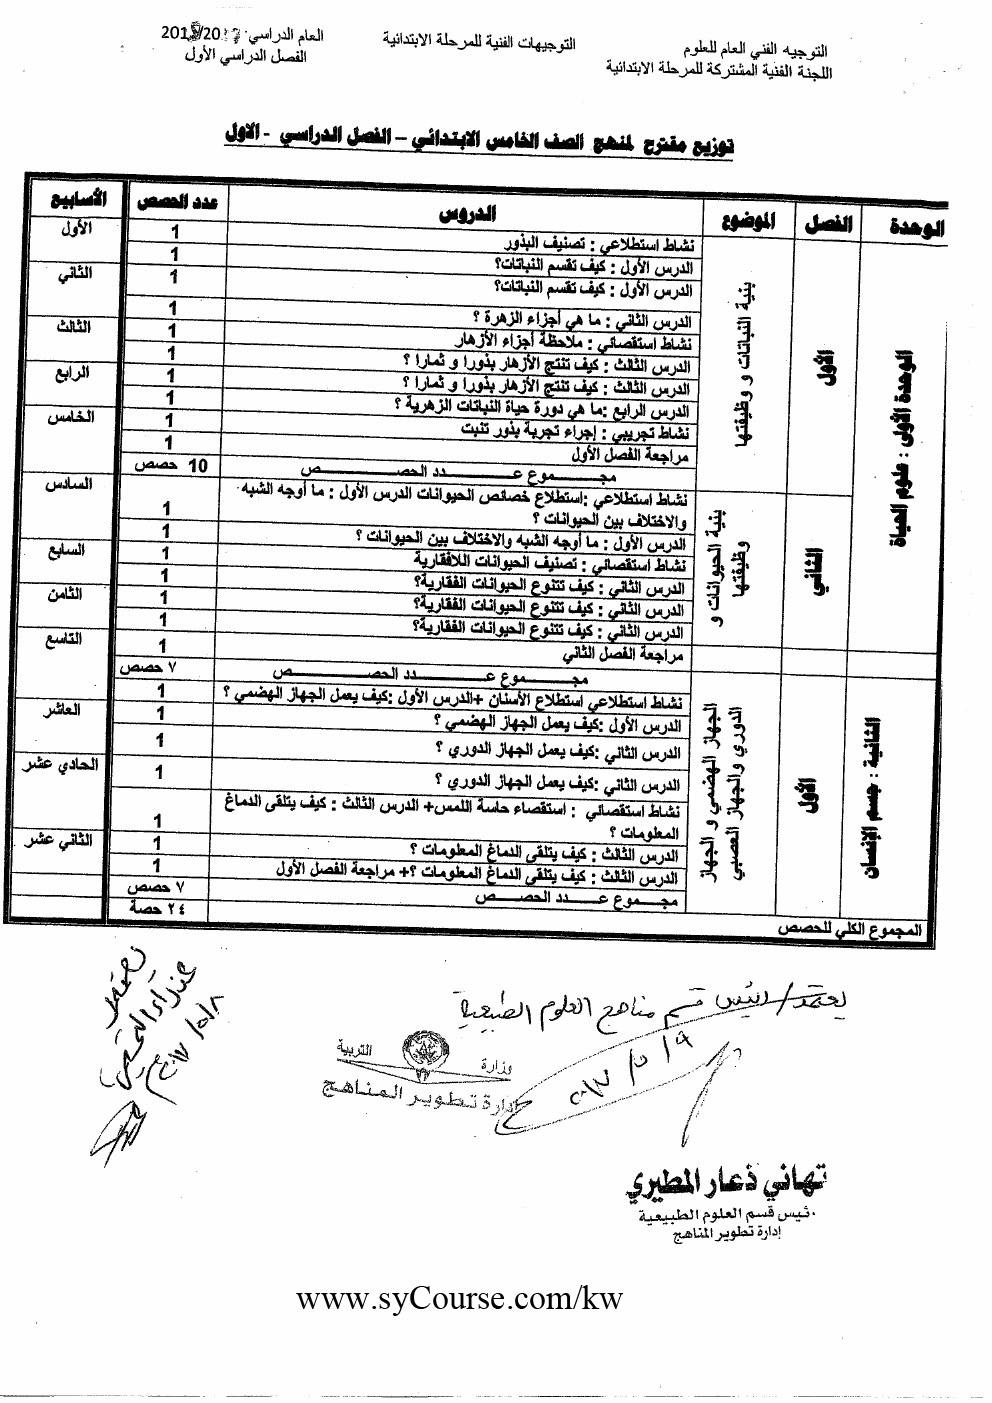 التوجيه الفني العام للعلوم
اللجنة الفنية المشتركة للمرحلة الابتدائية
التوجيهات الفنية للمرحلة الابتدائية
العام الدراسي
الفصل الدراسي الأول
توزيع مقترح لمنهج الصف الخامس الابتدائي – الفصل الدراسي - الاول
الوحدة الفصل الموضوع الدروس عدد الحصص الأسابيع
الوحدة الأولى : علوم الحياة
الأول
بنية النباتات و وظيفتها
نشاط استطلاعي : تصنيف البذور 1 الأول
الدرس الأول : كيف تقسم النباتات؟ 1
الدرس الأول : كيف تقسم النباتات؟ 1 الثاني
الدرس الثاني : ما هي أجزاء الزهرة ؟ 1
نشاط استقصائي : ملاحظة أجزاء الأزهار 1 الثالث
الدرس الثالث : كيف تنتج الأزهار بذورا و ثمارا ؟ 1
الدرس الثالث : كيف تنتج الأزهار بذورا و ثمارا ؟ 1 الرابع
الدرس الرابع :ما هي دورة حياة النباتات الزهرية ؟ 1
نشاط تجريبي : إجراء تجربة بذور تنبت 1 الخامس
مراجعة الفصل الأول 1
مجـــموع عـــدد الحصـــص 10 حصص
الثاني
بنية الحيوانات و وظيفتها
نشاط استطلاعي :استطلاع خصائص الحيوانات الدرس الأول : ما أوجه الشبه
والاختلاف بين الحيوانات ؟ 1 السادس
الدرس الأول : ما أوجه الشبه والاختلاف بين الحيوانات ؟ 1
نشاط استقصائي : تصنيف الحيوانات اللافقارية 1 السابع
الدرس الثاني : كيف تتنوع الحيوانات الفقارية؟ 1
الدرس الثاني : كيف تتنوع الحيوانات الفقارية؟ 1 الثامن
الدرس الثاني : كيف تتنوع الحيوانات الفقارية؟ 1
مراجعة الفصل الثاني 1 التاسع
مجـــموع عـــدد الحصـــص ٧ حصص
الثانية : جسم الإنسان
الأول
الجهاز الهضمي و الجهاز
الدوري والجهاز العصبي
نشاط استطلاعي استطلاع الأسنان +الدرس الأول :كيف يعمل الجهاز الهضمي ؟ 1
الدرس الأول :كيف يعمل الجهاز الهضمي ؟ 1 العاشر
الدرس الثاني :كيف يعمل الجهاز الدوري ؟ 1
الدرس الثاني :كيف يعمل الجهاز الدوري ؟ 1 الحادي عشر
نشاط استقصائي : استقصاء حاسة اللمس+ الدرس الثالث : كيف يتلقى الدماغ
المعلومات ؟ 1
الدرس الثالث : كيف يتلقى الدماغ المعلومات ؟ 1 الثاني عشر
الدرس الثالث : كيف يتلقى الدماغ المعلومات ؟+ مراجعة الفصل الأول 1
مجـــموع عـــدد الحصـــص ٧ حصص
المجموع الكلي للحصص ٢٤ حصة
يعتمد/ رئيس قسم مناهج العلوم الطبيعية
وزارة التربية
إدارة تطوير المناهج
تهاني ذعار المطيري
رئيس قسم العلوم الطبيعية
إدارة تطوير المناهج
www.syCourse.com/kw